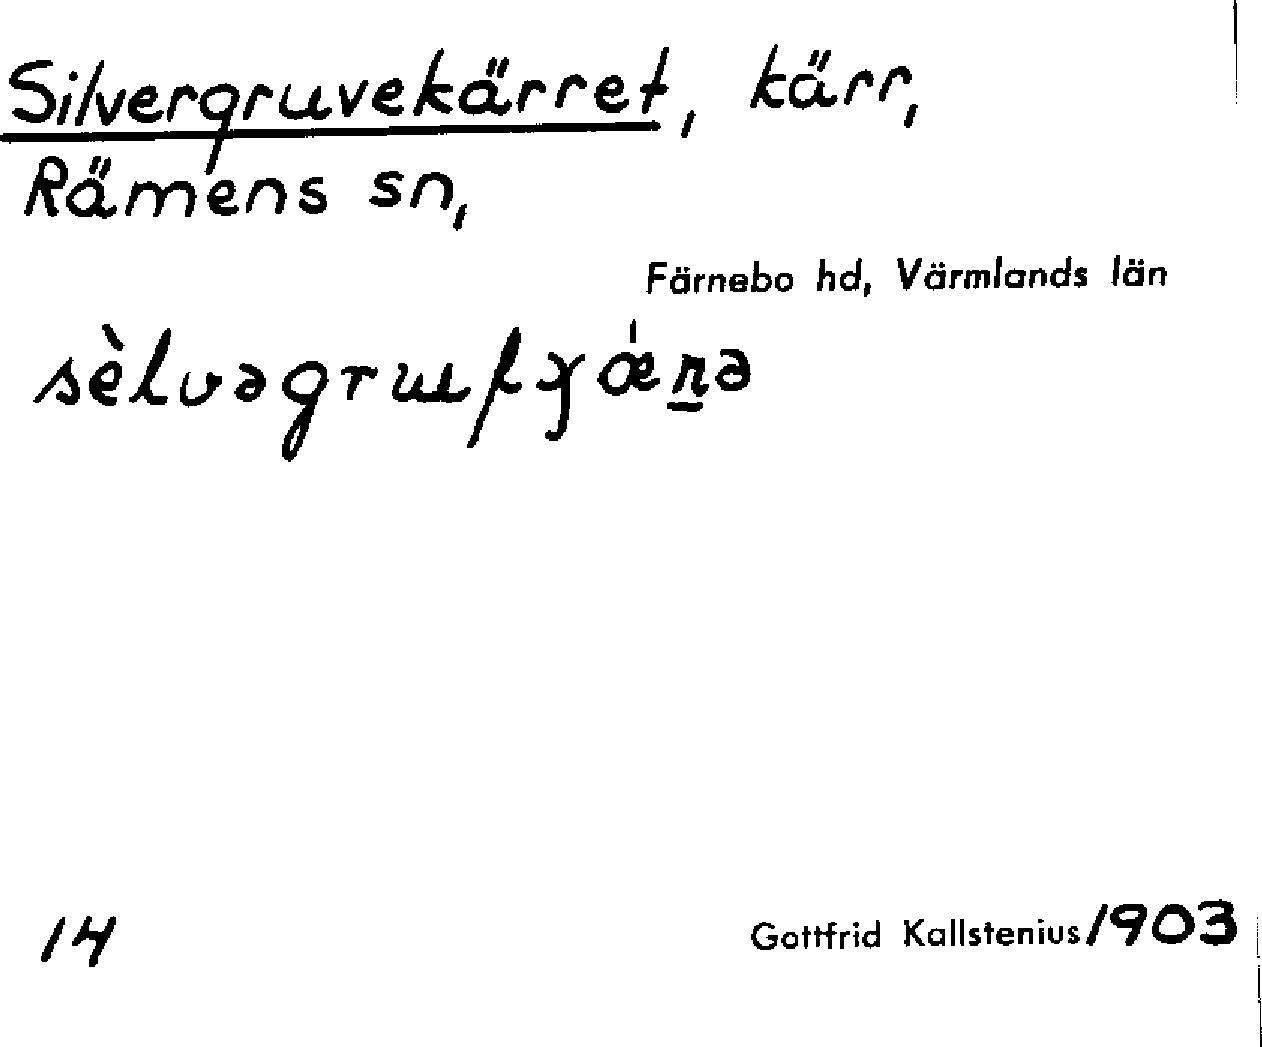 Silvergruvekärret, kärr,
Rämens sn,
Färnebo hd, Värmlands län
14
Gottfrid Kallstenius/1903